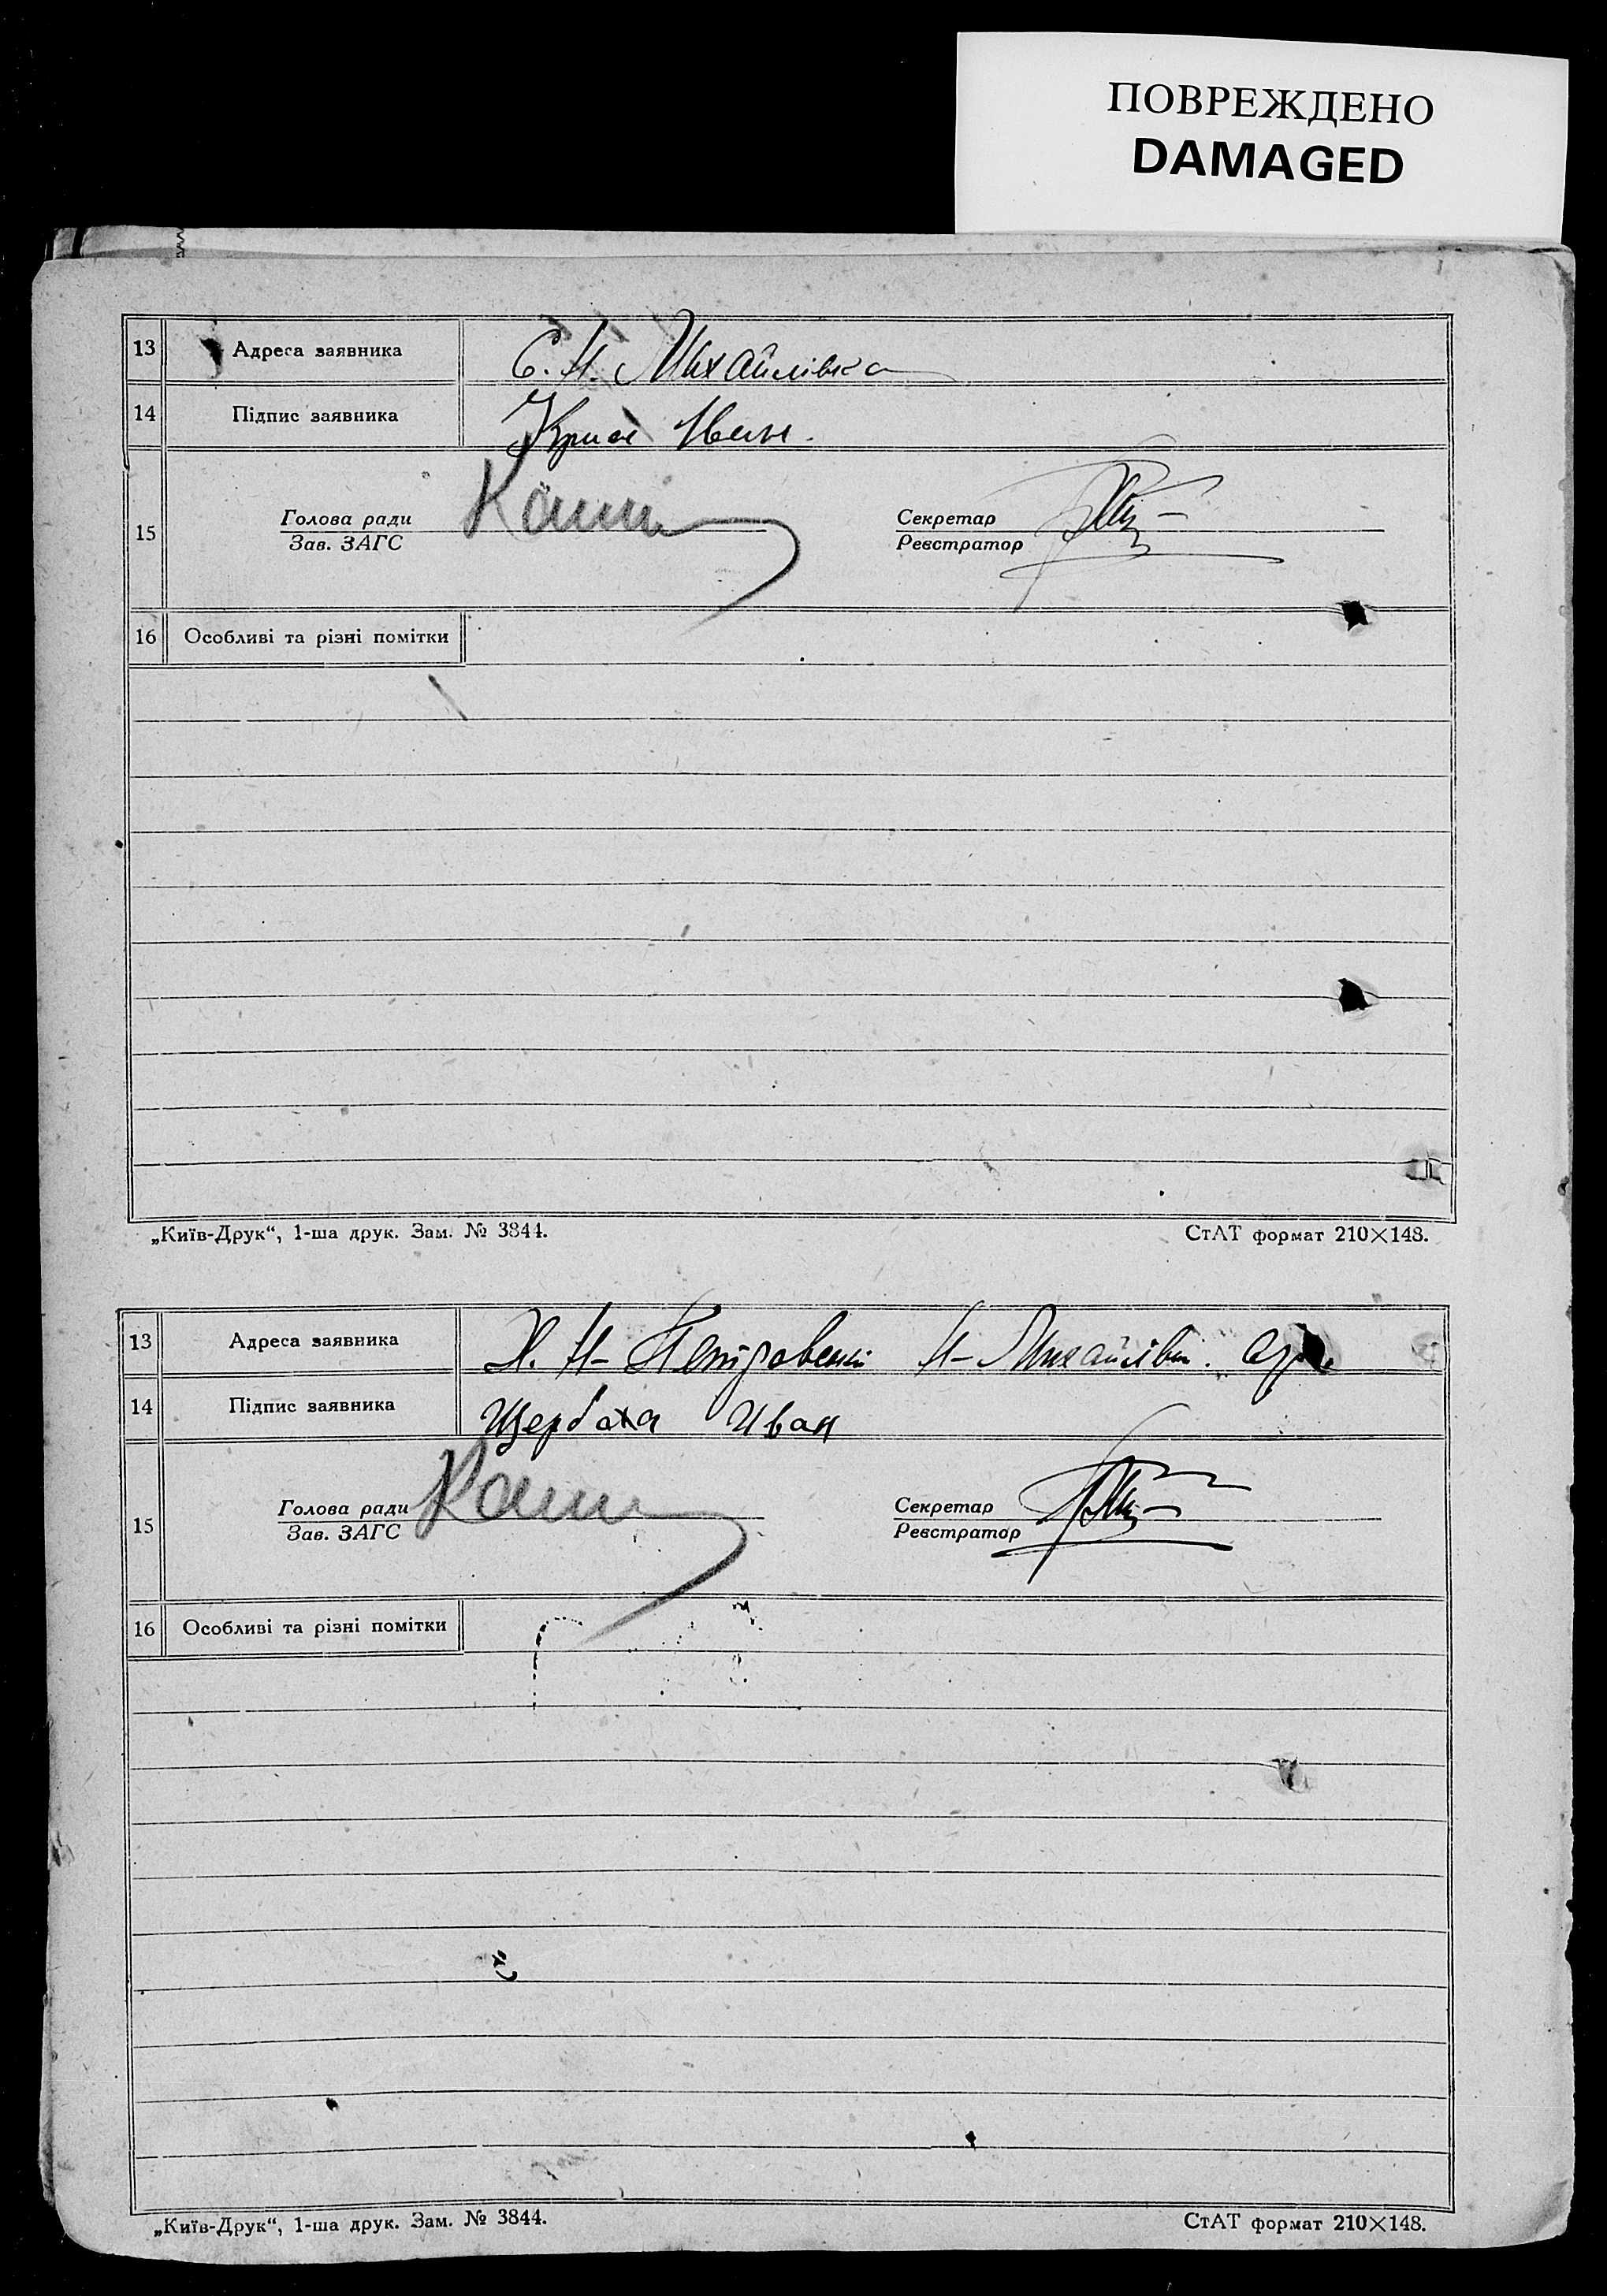 ПОВРЕЖДЕНО
DAMAGED
13 Адреса заявника С. Н. Михайлівка
14 Підпис заявника Іван.
15 Голова ради Секретар
Зав. ЗАГС Реєстратор
16 Особливі та різні помітки
„Київ-Друк“, 1-ша друк. Зам. № 3844. СтАТ формат 210×148.
13 Адреса заявника Х. Н-Петровський Н-Михайлівк.
14 Підпис заявника Щербаха Иван
15 Голова ради Секретар
Зав. ЗАГС Реєстратор
16 Особливі та різні помітки
„Київ-Друк“, 1-ша друк. Зам. № 3844. СтАТ формат 210×148.